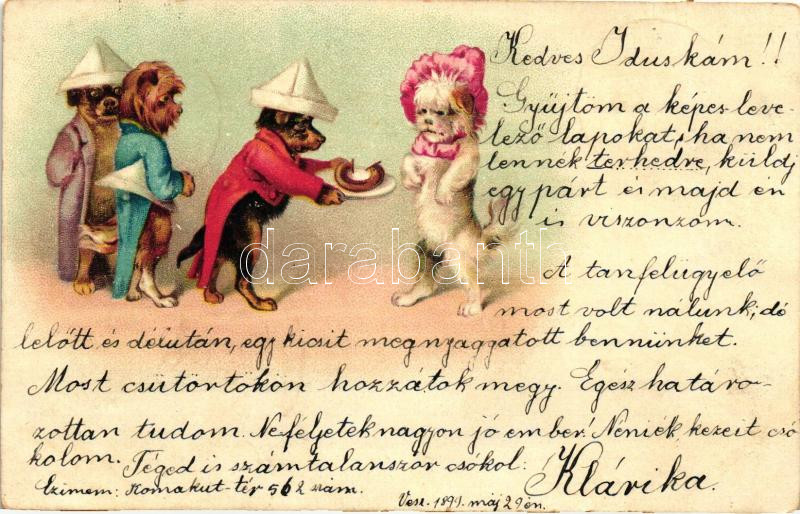 Kedves Iduskám!!
Gyüjtöm a képes leve-
lező lapokat, ha nem
lennék terhedre, küldj
egy párt és majd én
is viszonzom.
darabanth
A tanfelügyelő
most volt nálunk; dé
lelőtt és délután, egy kicsit megnyaggatott bennünket.
Most csütörtökön hozzátok megy. Egész határo-
zottan tudom. Ne féljetek nagyon jó ember! Neniék kezeit csó
kolom. Téged is számtalanszor csókol:
Klárika.
Czimem: Komakut-tér 562 szám.
Vesz. május 29én.